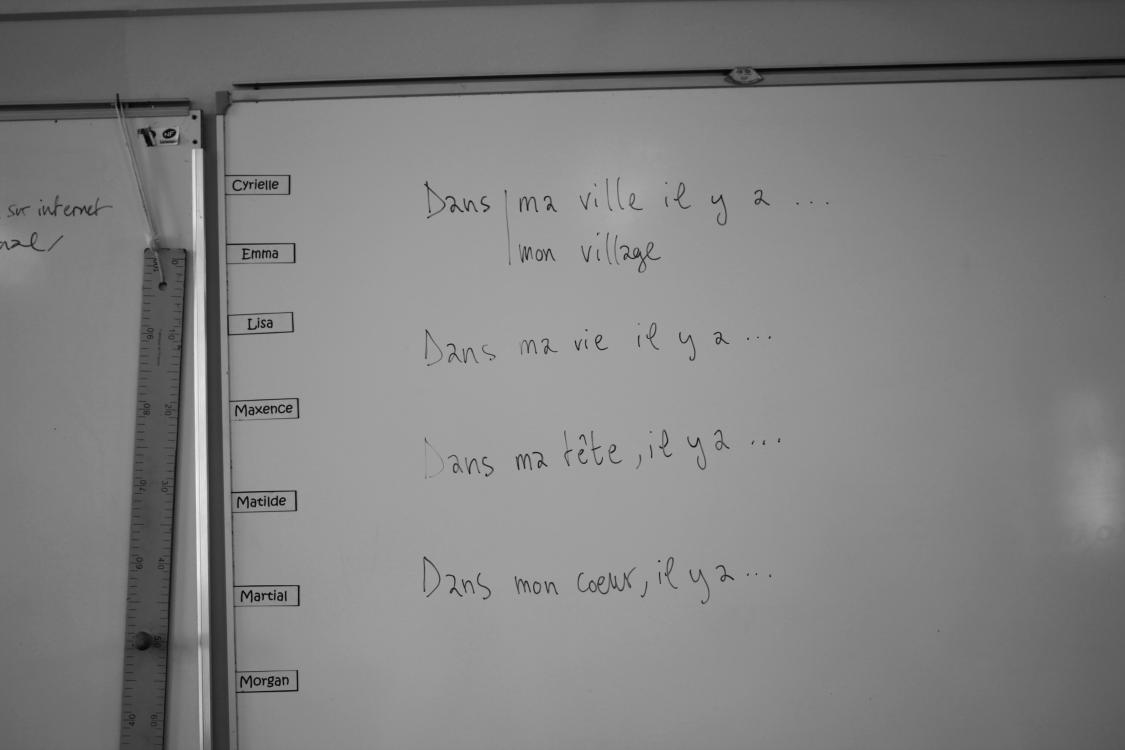 sur internet
Cyrielle
Emma
Lisa
Maxence
Matilde
Martial
Morgan
Dans ma ville il y a ...
mon village
Dans ma vie il y a ...
Dans ma tête, il y a ...
Dans mon coeur, il y a ...